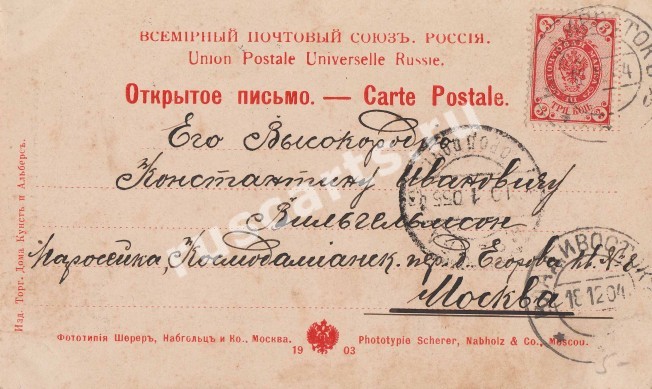 ВСЕМІРНЫЙ ПОЧТОВЫЙ СОЮЗЪ. РОССІЯ.
Union Postale Universelle Russie.
Открытое письмо. — Carte Postale.
3
3
3
3
ТРИ КОП.
Его Высокородію
Константину Ивановичу
Вильгельмсон
Маросейка, Космодаміанск. пер. д. Егорова
Москва
ВЛАДИВОСТОКЪ
18 12 04
Изд. Торг. Дома Кунстъ и Альберсъ.
Фототипія Шереръ, Набгольцъ и Ко., Москва.
1903
Phototypie Scherer, Nabholz & Co., Moscou.
5-
ruscarts.ru